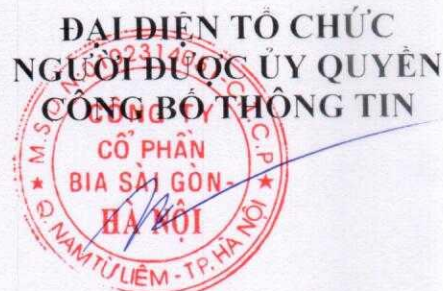 ĐẠI DIỆN TỔ CHỨC
NGƯỜI ĐƯỢC ỦY QUYỀN
CÔNG BỐ THÔNG TIN
CÔNG TY
CỔ PHẦN
BIA SÀI GÒN-
HÀ NỘI
Q. NAM TỪ LIÊM - T.P. HÀ NỘI